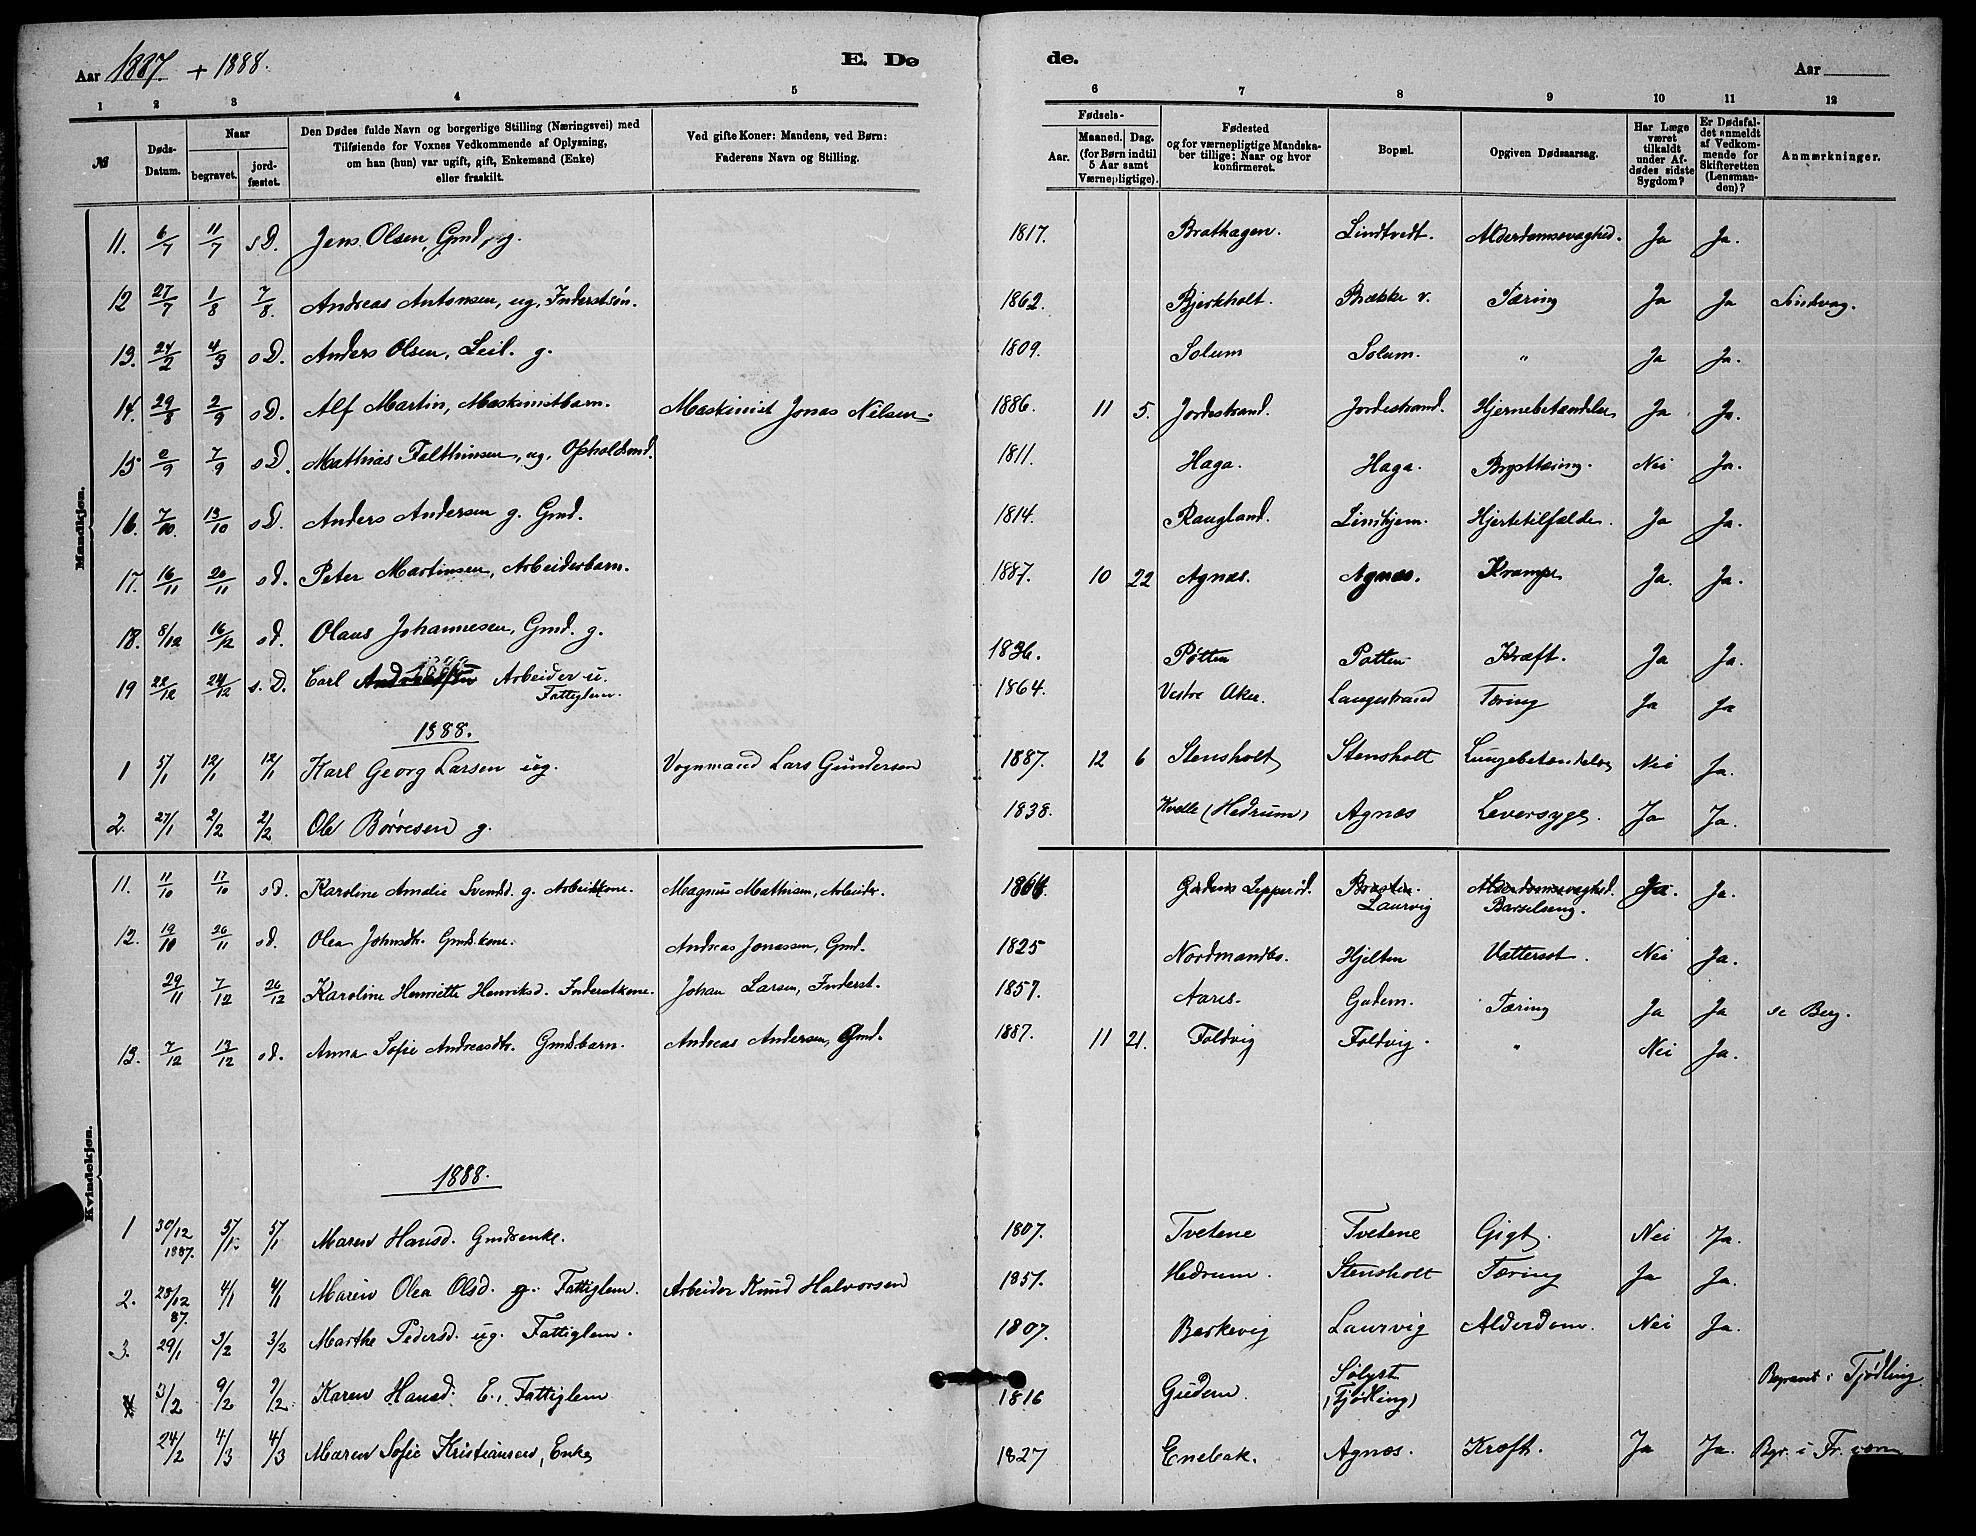 Aar 1887. + 1888.
E. Dø
de.
Aar
1 2 3 4 5 6 7 8 9 10 11 12
№
Døds-
Datum.
Naar
begravet.
jord-
fæstet.
Den Dødes fulde Navn og borgerlige Stilling (Næringsvei) med
Tilføiende for Voxnes Vedkommende af Oplysning,
om han (hun) var ugift, gift, Enkemand (Enke)
eller fraskilt.
Ved gifte Koner: Mandens, ved Børn:
Faderens Navn og Stilling.
Fødsels-
Aar.
Maaned. Dag.
(for Børn indtil
5 Aar samt
Værnepligtige).
Fødested
og for værnepligtige Mandska-
ber tillige: Naar og hvor
konfirmeret.
Bopæl.
Opgiven Dødsaarsag.
Har Læge
været
tilkaldt
under Af-
dødes sidste
Sygdom?
Er Dødsfal-
det anmeldt
af Vedkom-
mende for
Skifteretten
(Lensman-
den)?
Anmærkninger.
Mandkjøn.
11. 6/7 11/7 s D. Jens Olsen, Gmd, g. 1817. Brathagen. Lindtvedt. Alderdomssvaghed. Ja Ja.
12 27/7 1/8 7/8. Andreas Antonsen, ug, Inderstsøn. 1862. Bjerkholt. Brække v. Tæring Ja Ja
13. 24/2 4/3 s D. Anders Olsen, Leil. g. 1809. Solum Solum. " Ja Ja.
14. 29/8 2/9 s D. Alf Martin, Maskinistbarn. Maskinist Jonas Nilsen. 1886. 11 5. Jordestrand. Jordestrand. Hjernebetændelse Ja Ja.
15 2/9 7/9 s D. Mathias Falthinsen, ug, Opholdsmd. 1811. Haga. Haga. Brysttæring. Nei Ja.
16. 7/10. 13/10 s D. Anders Andersen g. Gmd. 1814. Raugland. Lindhjem. Hjertetilfælde. Ja Ja.
17. 16/11 20/11 s d. Peter Martinsen, Arbeiderbarn. 1887. 10 22 Agnæs. Agnæs. Krampe Ja. Ja.
18. 8/12 16/12 s d. Olaus Johannesen, Gmd. g. 1836. Pøtten Pøtten Kræft. Ja Ja.
19 22/12 24/12 s. D. Carl Arbeider u.
Fattiglem. 1864. Vestre Aker. Langestrand Tæring Ja Ja
1888.
1 5/1 12/1 12/1 Karl Georg Larsen ug. Vognmand Lars Gundersen 1887. 12 6 Stensholt Stensholt Lungebetændelse Nei Ja.
2. 27/1 2/2 2/2 Ole Børresen g. 1838. Kvelle (Hedrum) Agnæs Leversyge. Ja Ja.
Kvindekjøn.
11. 11/10 17/10 s d. Karoline Amalie Svendsd. g. Arbeidkone. Magnus Mathisen, Arbeider. 1864. Lepperød. Laurvig Alderdomssvaghed.
Barselseng. Ja. Ja.
12. 19/10 20/11 s d. Olea Johnsdtr. Gmdskone. Andreas Jonassen, Gmd. 1825 Nordmandbs. Hjelten Vattersot. Nei Ja.
29/11 7/12 20/12 Karoline Henriette Henriksd. Inderstkone. Johan Larsen, Inderst. 1857. Aaris. Gudem. Tæring Ja Ja se Berg.
13. 7/12 13/12 s d. Anna Sofie Andreasdtr. Gmdsbarn. Andreas Andersen, Gmd. 1887. 11 21. Foldvig Foldvig. " Nei Ja.
1888.
1 30/12 1887. 5/1 5/1 Maren Hansd. Gmdsenke. 1807. Tvetene Tvetene Gigt. Nei Ja.
2. 28/12 87. 4/1 4/1 Maren Olea Olsd. g. Fattiglem. Arbeider Knud Halvorsen 1857. Hedrum. Stensholt Tæring Ja Ja.
3. 29/1 3/2 3/2 Marthe Pedersd. ug. Fattiglem. 1807. Barkevig Laurvig Alderdom. Nei Ja.
4 3/2 9/2 9/2 Karen Hansd: E., Fattiglem 1816 Gudem. Sølyst
(Tjødling) Begravet i Tjødling.
24/2 4/3 4/3 Maren Sofie Kristiansen, Enke 1827 Enebak. Agnæs. Kræft. Ja Ja. Bgr. i Fr. værn